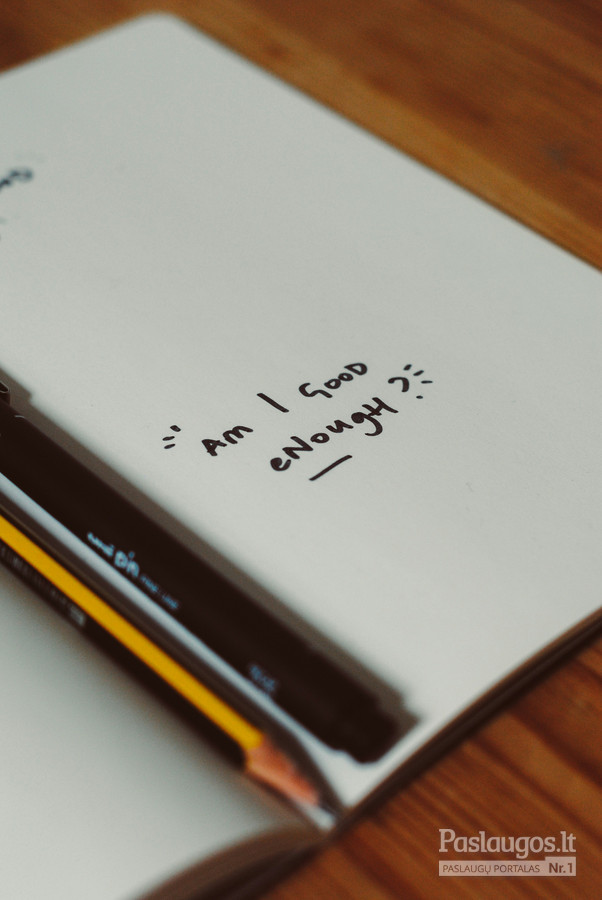 AM I GOOD
eNougH?
uni
PIN
Paslaugos.lt
PASLAUGŲ PORTALAS Nr.1